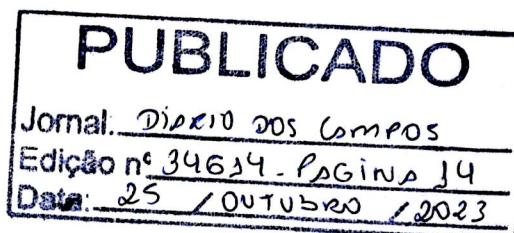 PUBLICADO
Jornal: DIÁRIO DOS CAMPOS
Edição nº 34614 - PÁGINA 14
Data: 25 / OUTUBRO / 2023